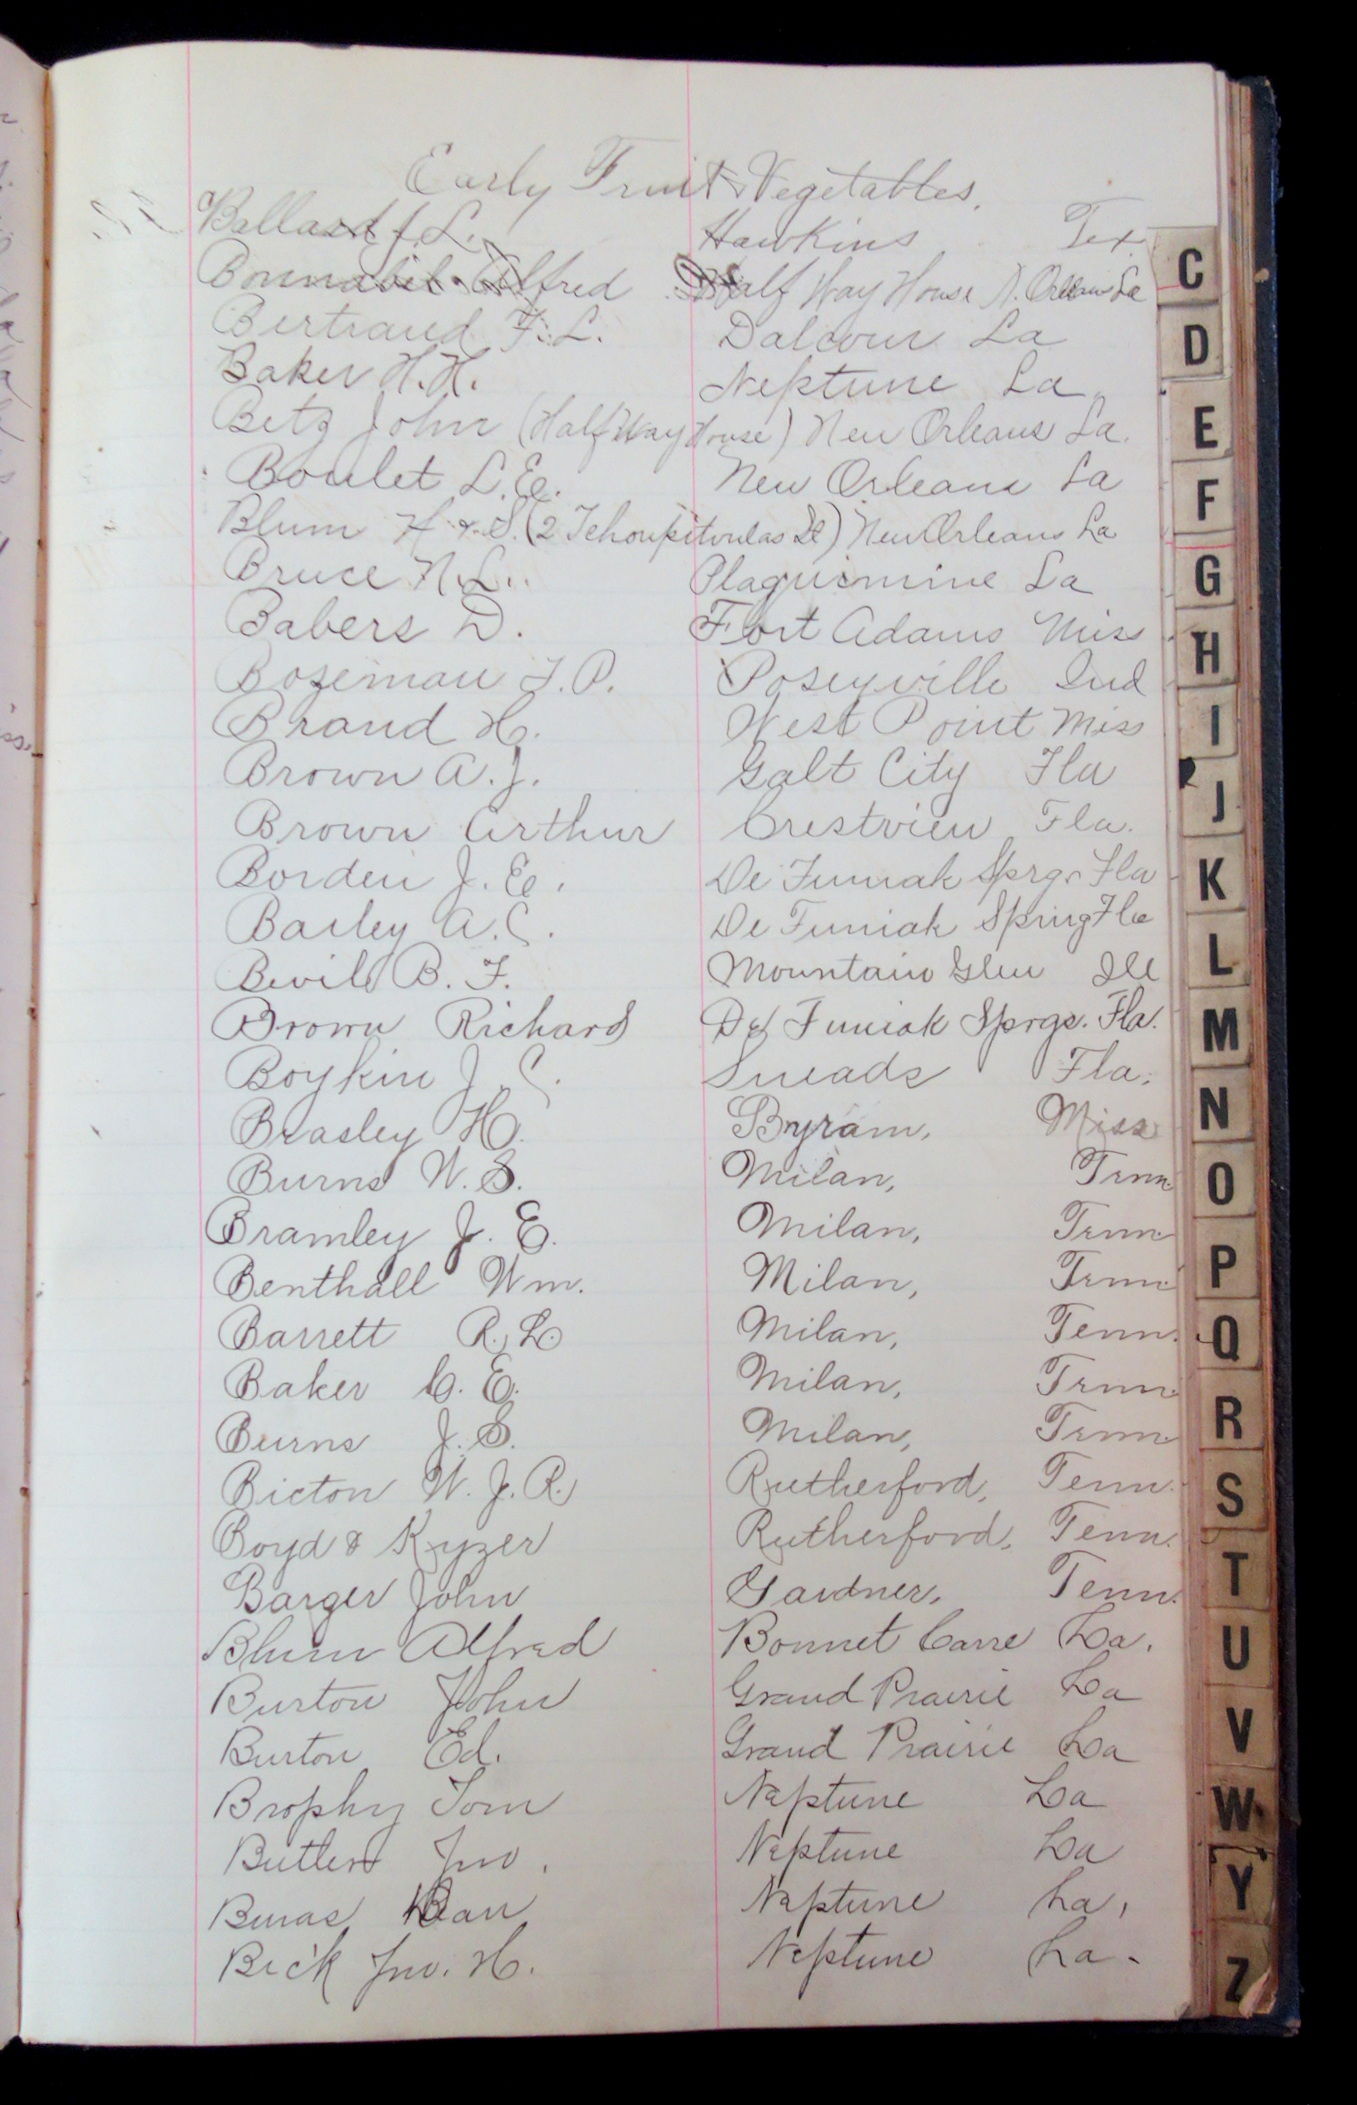 Early Fruit & Vegetables.
Ballard J. L. Hawkins Tex.
Bonnabel Alfred Half Way House N. Orleans La
Bertraud F. L. Dalcour La
Baker H. H. Neptune La.
Betz John (Half Way House) New Orleans La.
Boulet L. E. New Orleans La
Blum H & S. (2 Tchoupitoulas St) New Orleans La
Bruce N. L. Plaquemine La
Babers D. Fort Adams Miss
Bozeman J. P. Poseyville Ind
Brand H. West Point Miss
Brown A. J. Galt City Fla
Brown Arthur Crestview Fla.
Borden J. E. De Funiak Sprgs Fla
Bailey A. C. De Funiak Spring Fla
Bevil B. F. Mountain Glen Ill
Brown Richard De Funiak Sprgs. Fla.
Boykin J. C. Sneads Fla.
Beasley H. Byram, Miss
Burns W. S. Milan, Tenn
Bramley J. E. Milan, Tenn
Benthall Wm. Milan, Tenn
Barrett R. L. Milan, Tenn.
Baker C. E. Milan, Tenn.
Burns J. S. Milan, Tenn
Bicton W. J. R. Rutherford, Tenn.
Boyd & Kyzer Rutherford, Tenn.
Barger John Gardner, Tenn.
Blum Alfred Bonnet Carre La.
Burton John Grand Prairie La
Burton Ed. Grand Prairie La
Brophy Tom Neptune La
Butler Jno. Neptune La
Buras Neptune La.
Bick Jno. H. Neptune La.
C
D
E
F
G
H
I
J
K
L
M
N
O
P
Q
R
S
T
U
V
W
Y
Z